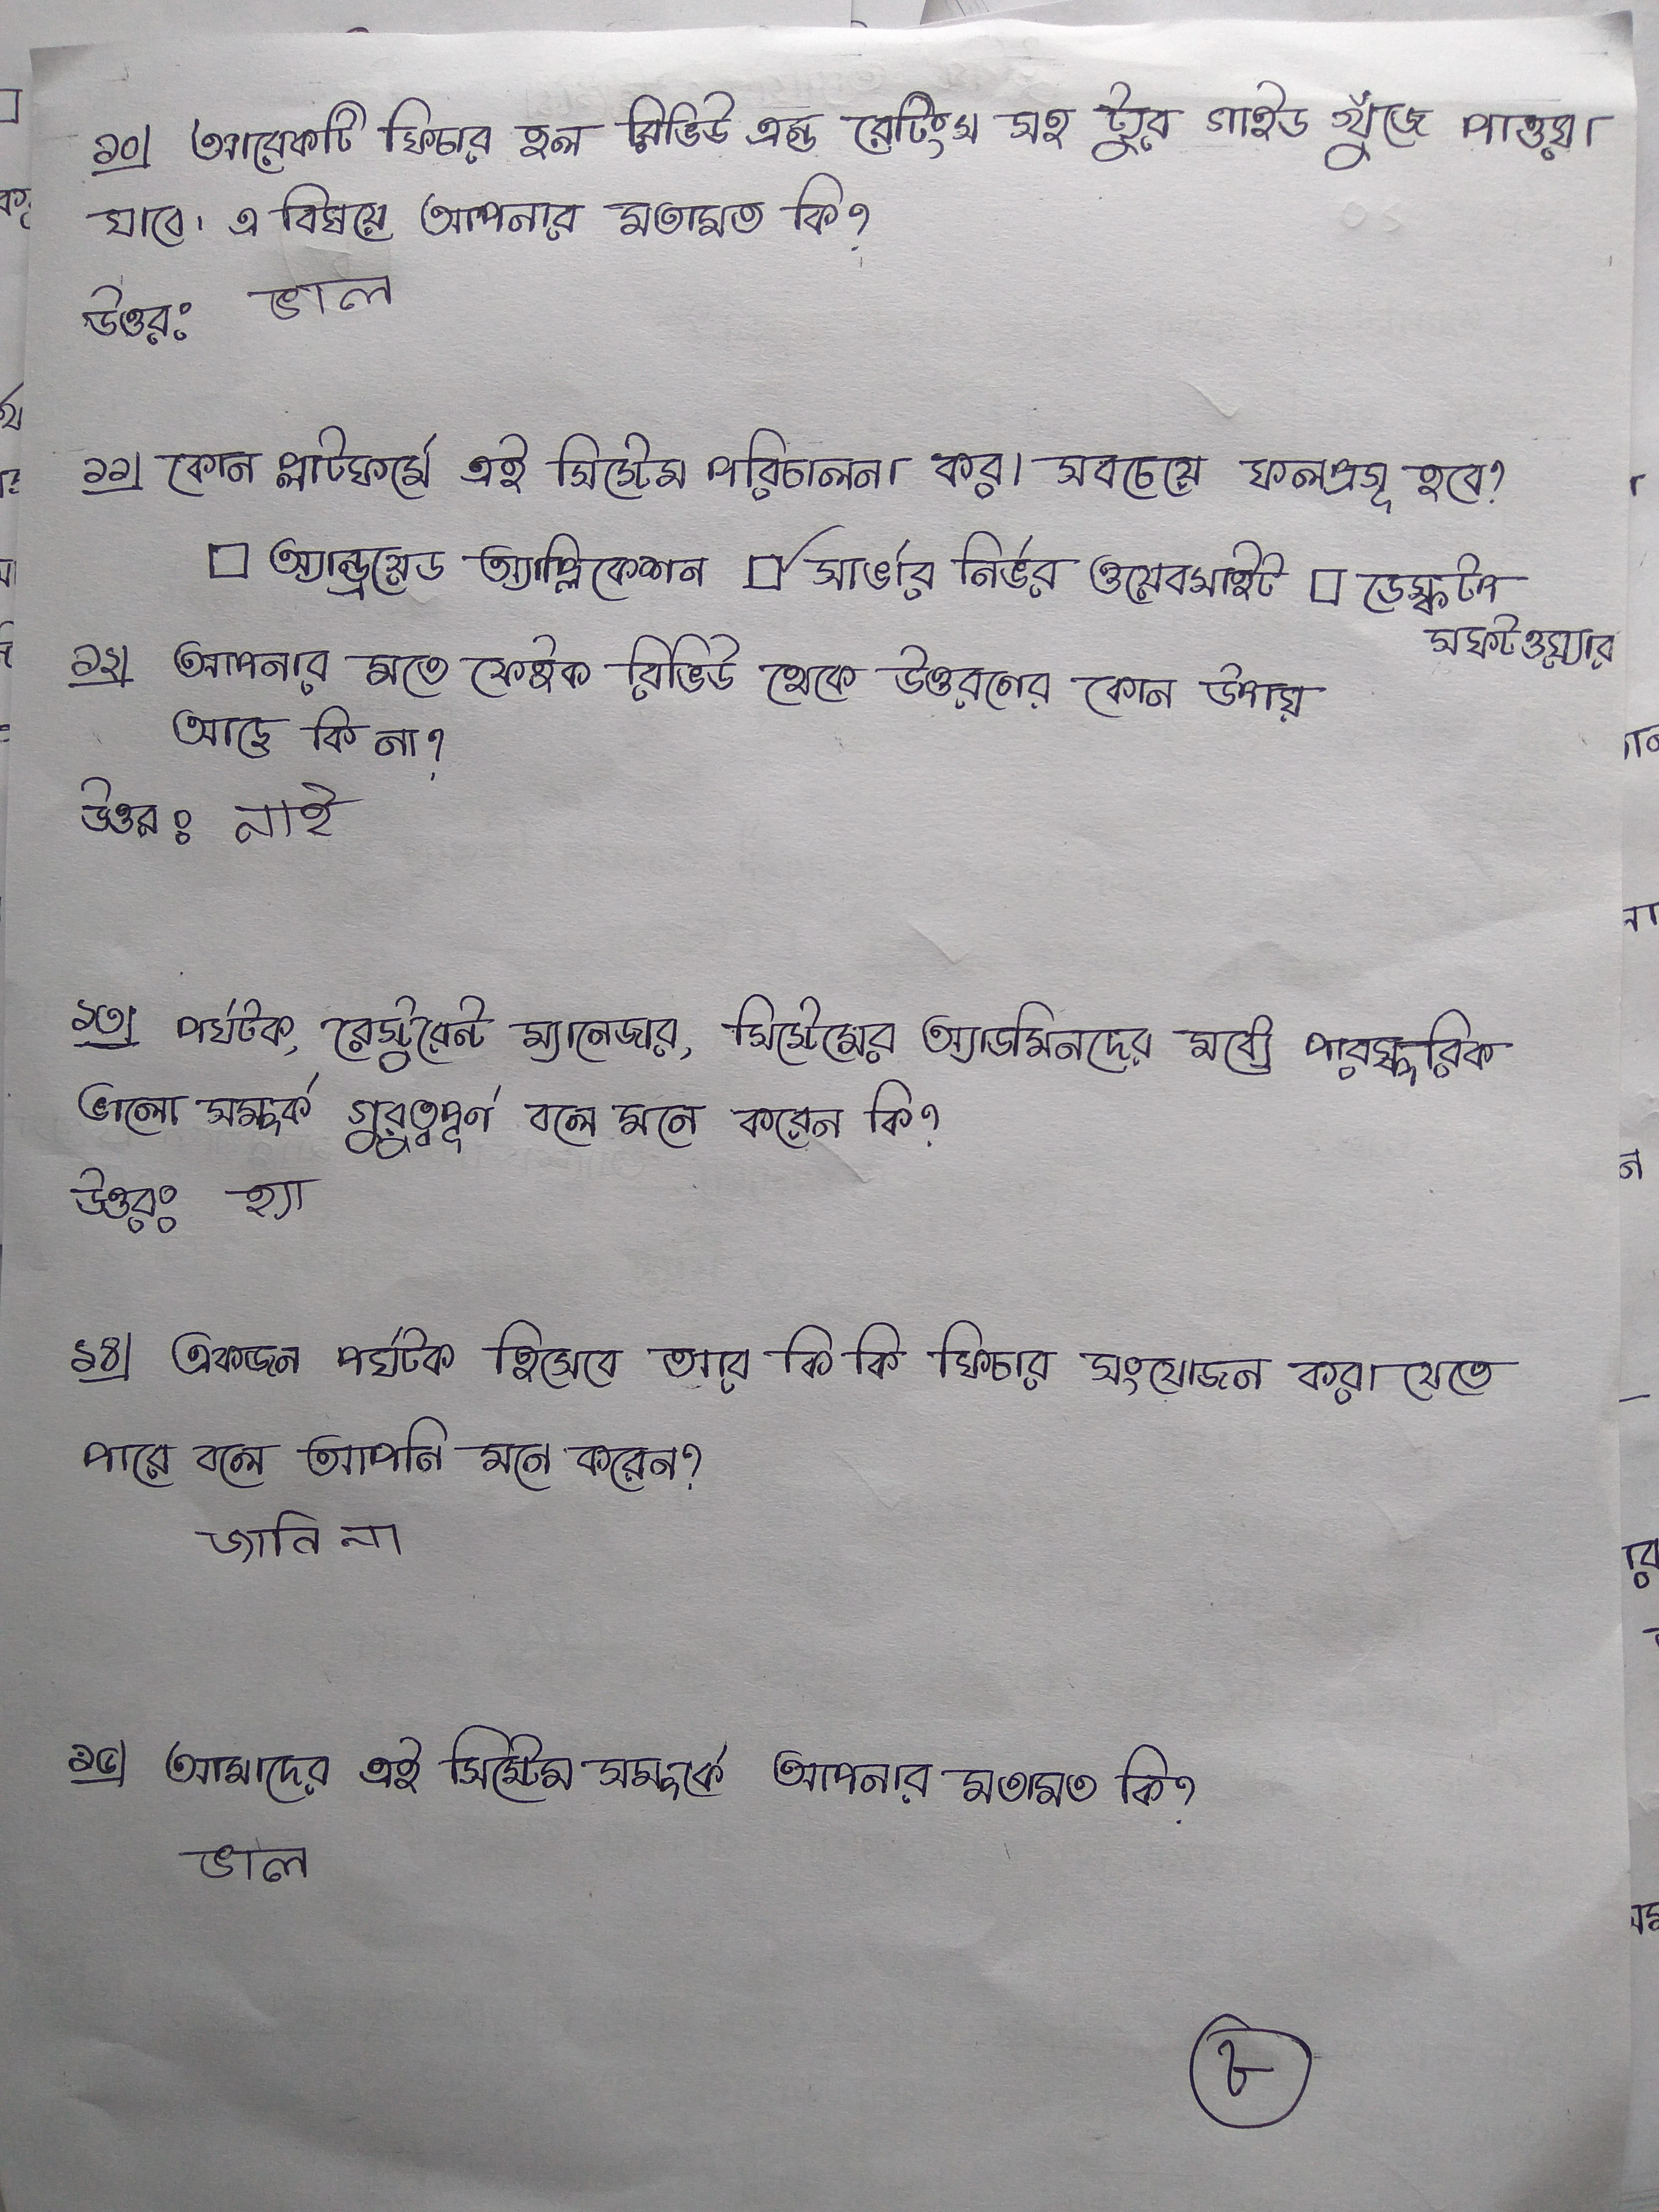 ১০। আরেকটি ফিচার হল রিভিউ এন্ড রেটিংস সহ ট্যুর গাইড খুঁজে পাওয়া
যাবে। এ বিষয়ে আপনার মতামত কি?
উত্তরঃ ভাল
১১। কোন প্লাটফর্মে এই সিস্টেম পরিচালনা করা সবচেয়ে ফলপ্রসূ হবে?
☐ অ্যান্ড্রয়েড অ্যাপ্লিকেশন ☑ সার্ভার নির্ভর ওয়েবসাইট ☐ ডেস্কটপ
সফটওয়্যার
১২। আপনার মতে ফেইক রিভিউ থেকে উত্তরণের কোন উপায়
আছে কি না?
উত্তরঃ নাই
১৩। পর্যটক, রেস্টুরেন্ট ম্যানেজার, সিস্টেমের অ্যাডমিনদের মধ্যে পারস্পরিক
ভালো সম্পর্ক গুরুত্বপূর্ণ বলে মনে করেন কি?
উত্তরঃ হ্যা
১৪। একজন পর্যটক হিসেবে আর কি কি ফিচার সংযোজন করা যেতে
পারে বলে আপনি মনে করেন?
জানি না
১৫। আমাদের এই সিস্টেম সম্পর্কে আপনার মতামত কি?
ভাল
৮